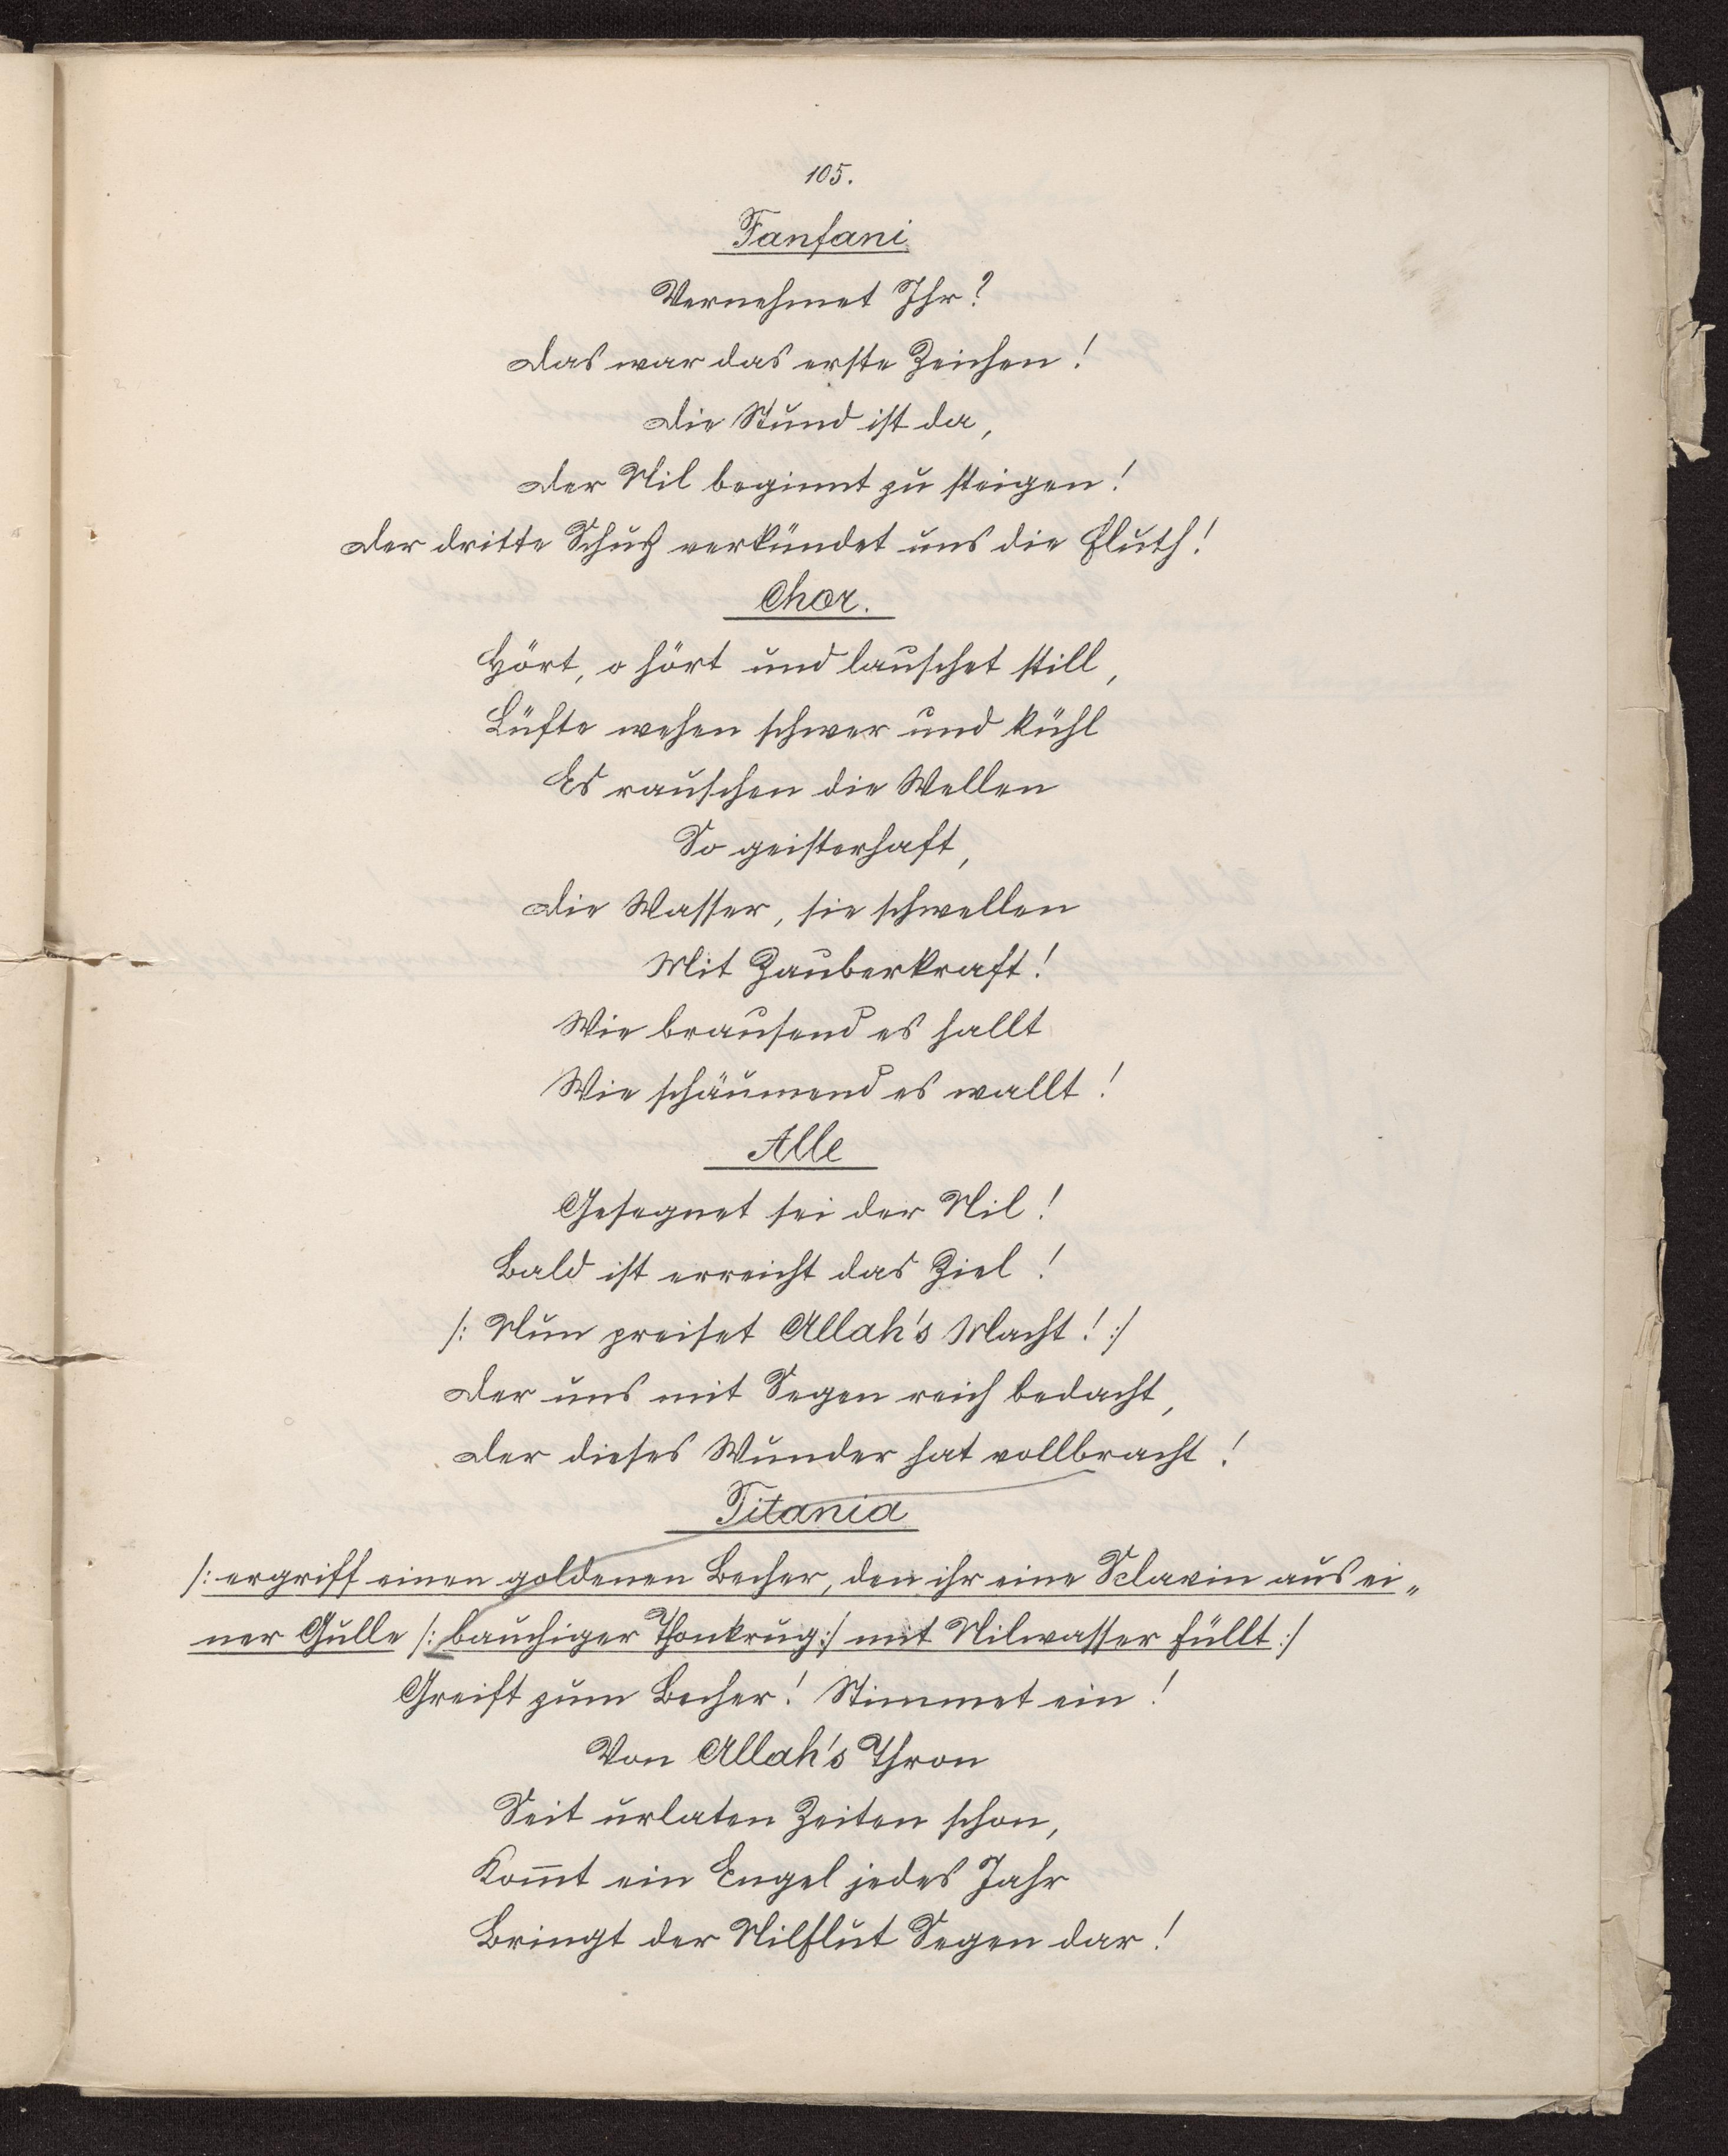 105.
Fanfani
Vernehmet Ihr?
Das war das erste Zeichen!
Die Stund ist da,
Der Nil beginnt zu steigen!
Der dritte Schuß verkündet uns die Fluth!
Chor.
Hört, o hört und lauschet still,
Lüfte wehen schwer und kühl
Es rauschen die Wellen
So geisterhaft,
Die Wasser, sie schwellen
Mit Zauberkraft!
Wie brausend es hallt
Wie schäumend es wallt!
Alle
Gesegnet sei der Nil!
Bald ist erreicht das Ziel!
/: Nun preiset Allah's Macht! :/
Der uns mit Segen reich bedacht,
Der dieses Wunder hat vollbracht!
Titania
/: ergriff einen goldenen Becher, den ihr eine Sclavin aus ei„
ner Gulle /: bauchiger Thonkrug :/ mit Nilwasser füllt :/
Greift zum Becher! Stimmet ein!
Von Allah's Thron
Seit urlaten Zeiten schon,
Kom̅t ein Engel jedes Jahr
Bringt der Nilflut Segen dar!